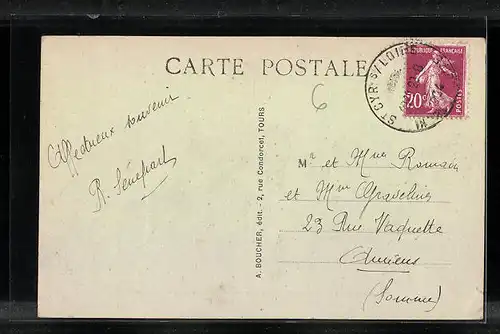 CARTE POSTALE
ST CYR S/ LOIRE
RÉPUBLIQUE FRANÇAISE
20c
POSTES
6
Affectueux souvenir
R. Sénépart
A. BOUCHER, édit. - 2, rue Condorcet, TOURS
Mr et Mme Romain
et Mme Gravelines
23 Rue Vaquette
Amiens
(Somme)